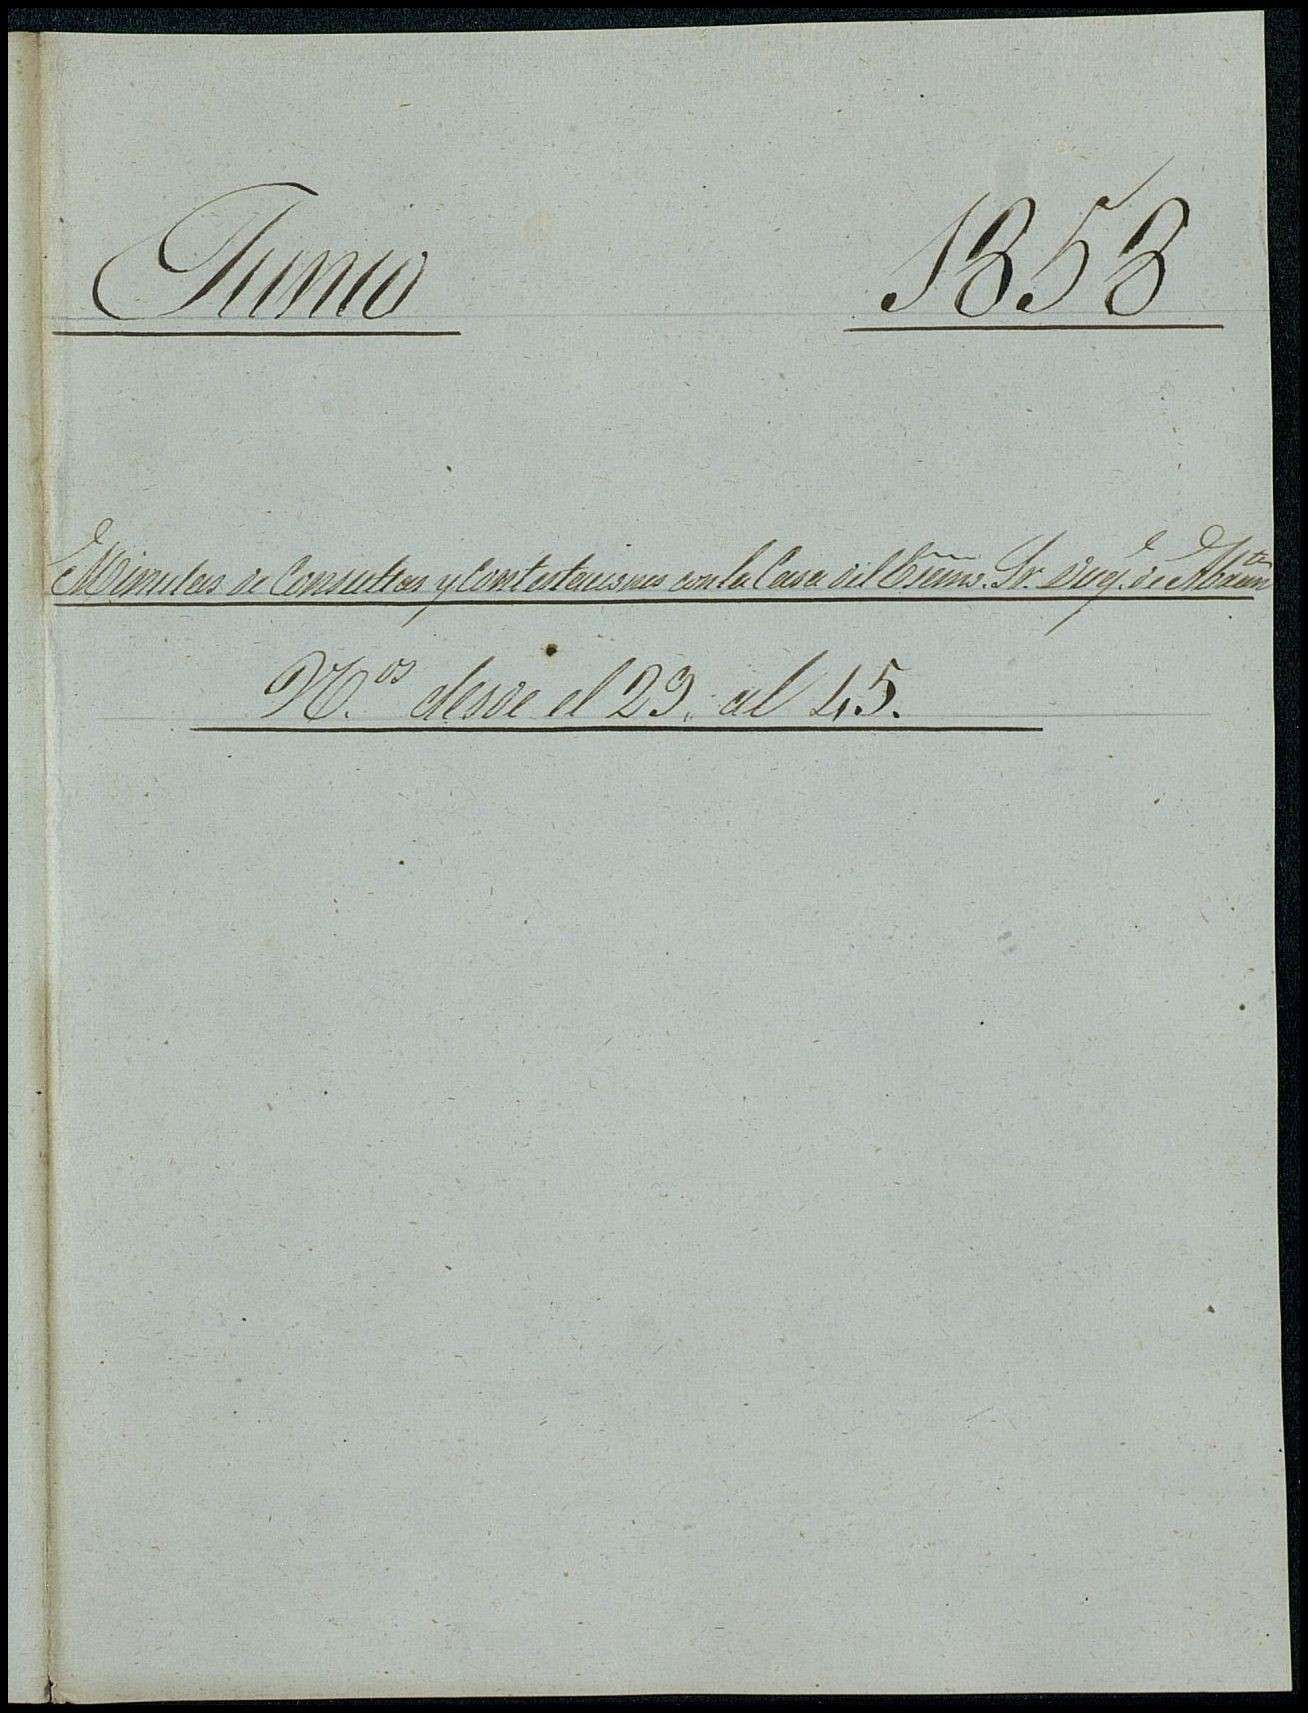 Junio 1858
Minutas de Consultas y Contestaciones con la Casa del Excmo. Sr. Duq.e de Abran.tes
N.os desde el 29. al 45.